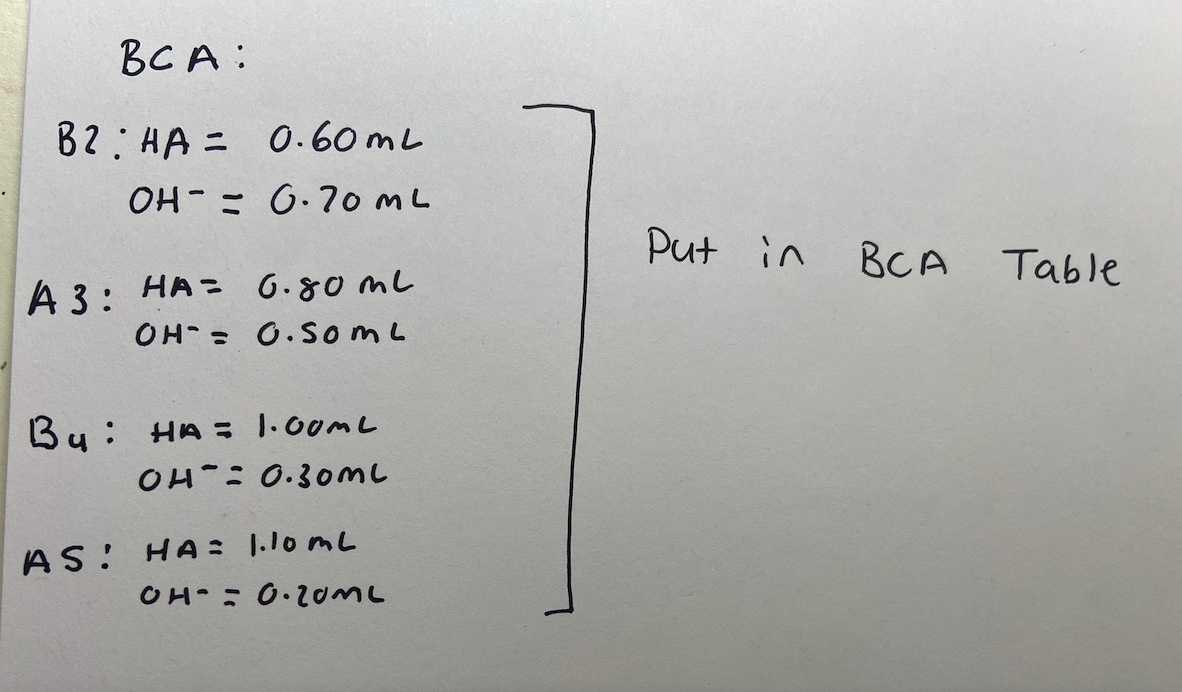 BCA:
B2: HA = 0.60 mL
OH- = 0.70 mL
A3: HA = 0.80 mL
OH- = 0.50 mL
Put in BCA Table
B4: HA = 1.00mL
OH- = 0.30mL
A5: HA = 1.10 mL
OH- = 0.20mL